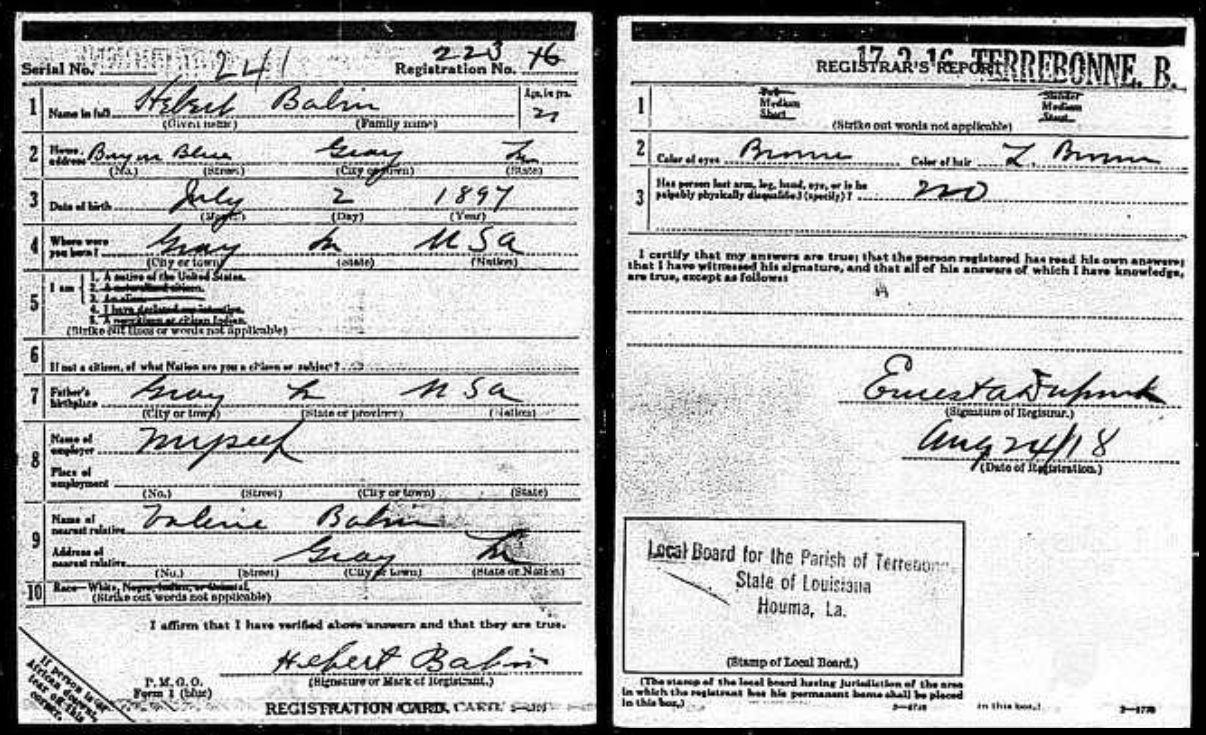 Serial No. 241 Registration No. 223 46
1 Name in full Hebert Babin Age, in yrs. 21
(Given name) (Family name)
2 Home address Bayou Blue Gray La
(No.) (Street) (City or town) (State)
3 Date of birth July 2 1897
(Month) (Day) (Year)
4 Where were you born? Gray La USA
(City or town) (State) (Nation)
5 I am
1. A native of the United States.
2. A naturalized citizen.
3. An alien.
4. I have declared my intention.
5. A noncitizen or citizen Indian.
(Strike out lines or words not applicable)
6 If not a citizen, of what Nation are you a citizen or subject?
7 Father's birthplace Gray La USA
(City or town) (State or province) (Nation)
8 Name of employer Myself
Place of employment
(No.) (Street) (City or town) (State)
9 Name of nearest relative Valerie Babin
Address of nearest relative Gray La
(No.) (Street) (City or town) (State or Nation)
10 Race—White, Negro, Indian, or Oriental.
(Strike out words not applicable)
I affirm that I have verified above answers and that they are true.
Hebert Babin
(Signature or Mark of Registrant.)
P. M. G. O.
Form 1 (blue)
REGISTRATION CARD.
If person is of African descent, tear off this corner.
17-2-16 TERREBONNE, B.
REGISTRAR'S REPORT
1 Tall Medium Short Slender Medium Stout
(Strike out words not applicable)
2 Color of eyes Brown Color of hair L. Brown
3 Has person lost arm, leg, hand, eye, or is he palpably physically disqualified (specify)? no
I certify that my answers are true; that the person registered has read his own answers;
that I have witnessed his signature, and that all of his answers of which I have knowledge,
are true, except as follows:
Ernest A Dupont
(Signature of Registrar.)
Aug 24/18
(Date of Registration.)
Local Board for the Parish of Terrebonne,
State of Louisiana
Houma, La.
(Stamp of Local Board.)
(The stamp of the local board having jurisdiction of the area
in which the registrant has his permanent home shall be placed
in this box.)
in this box.)